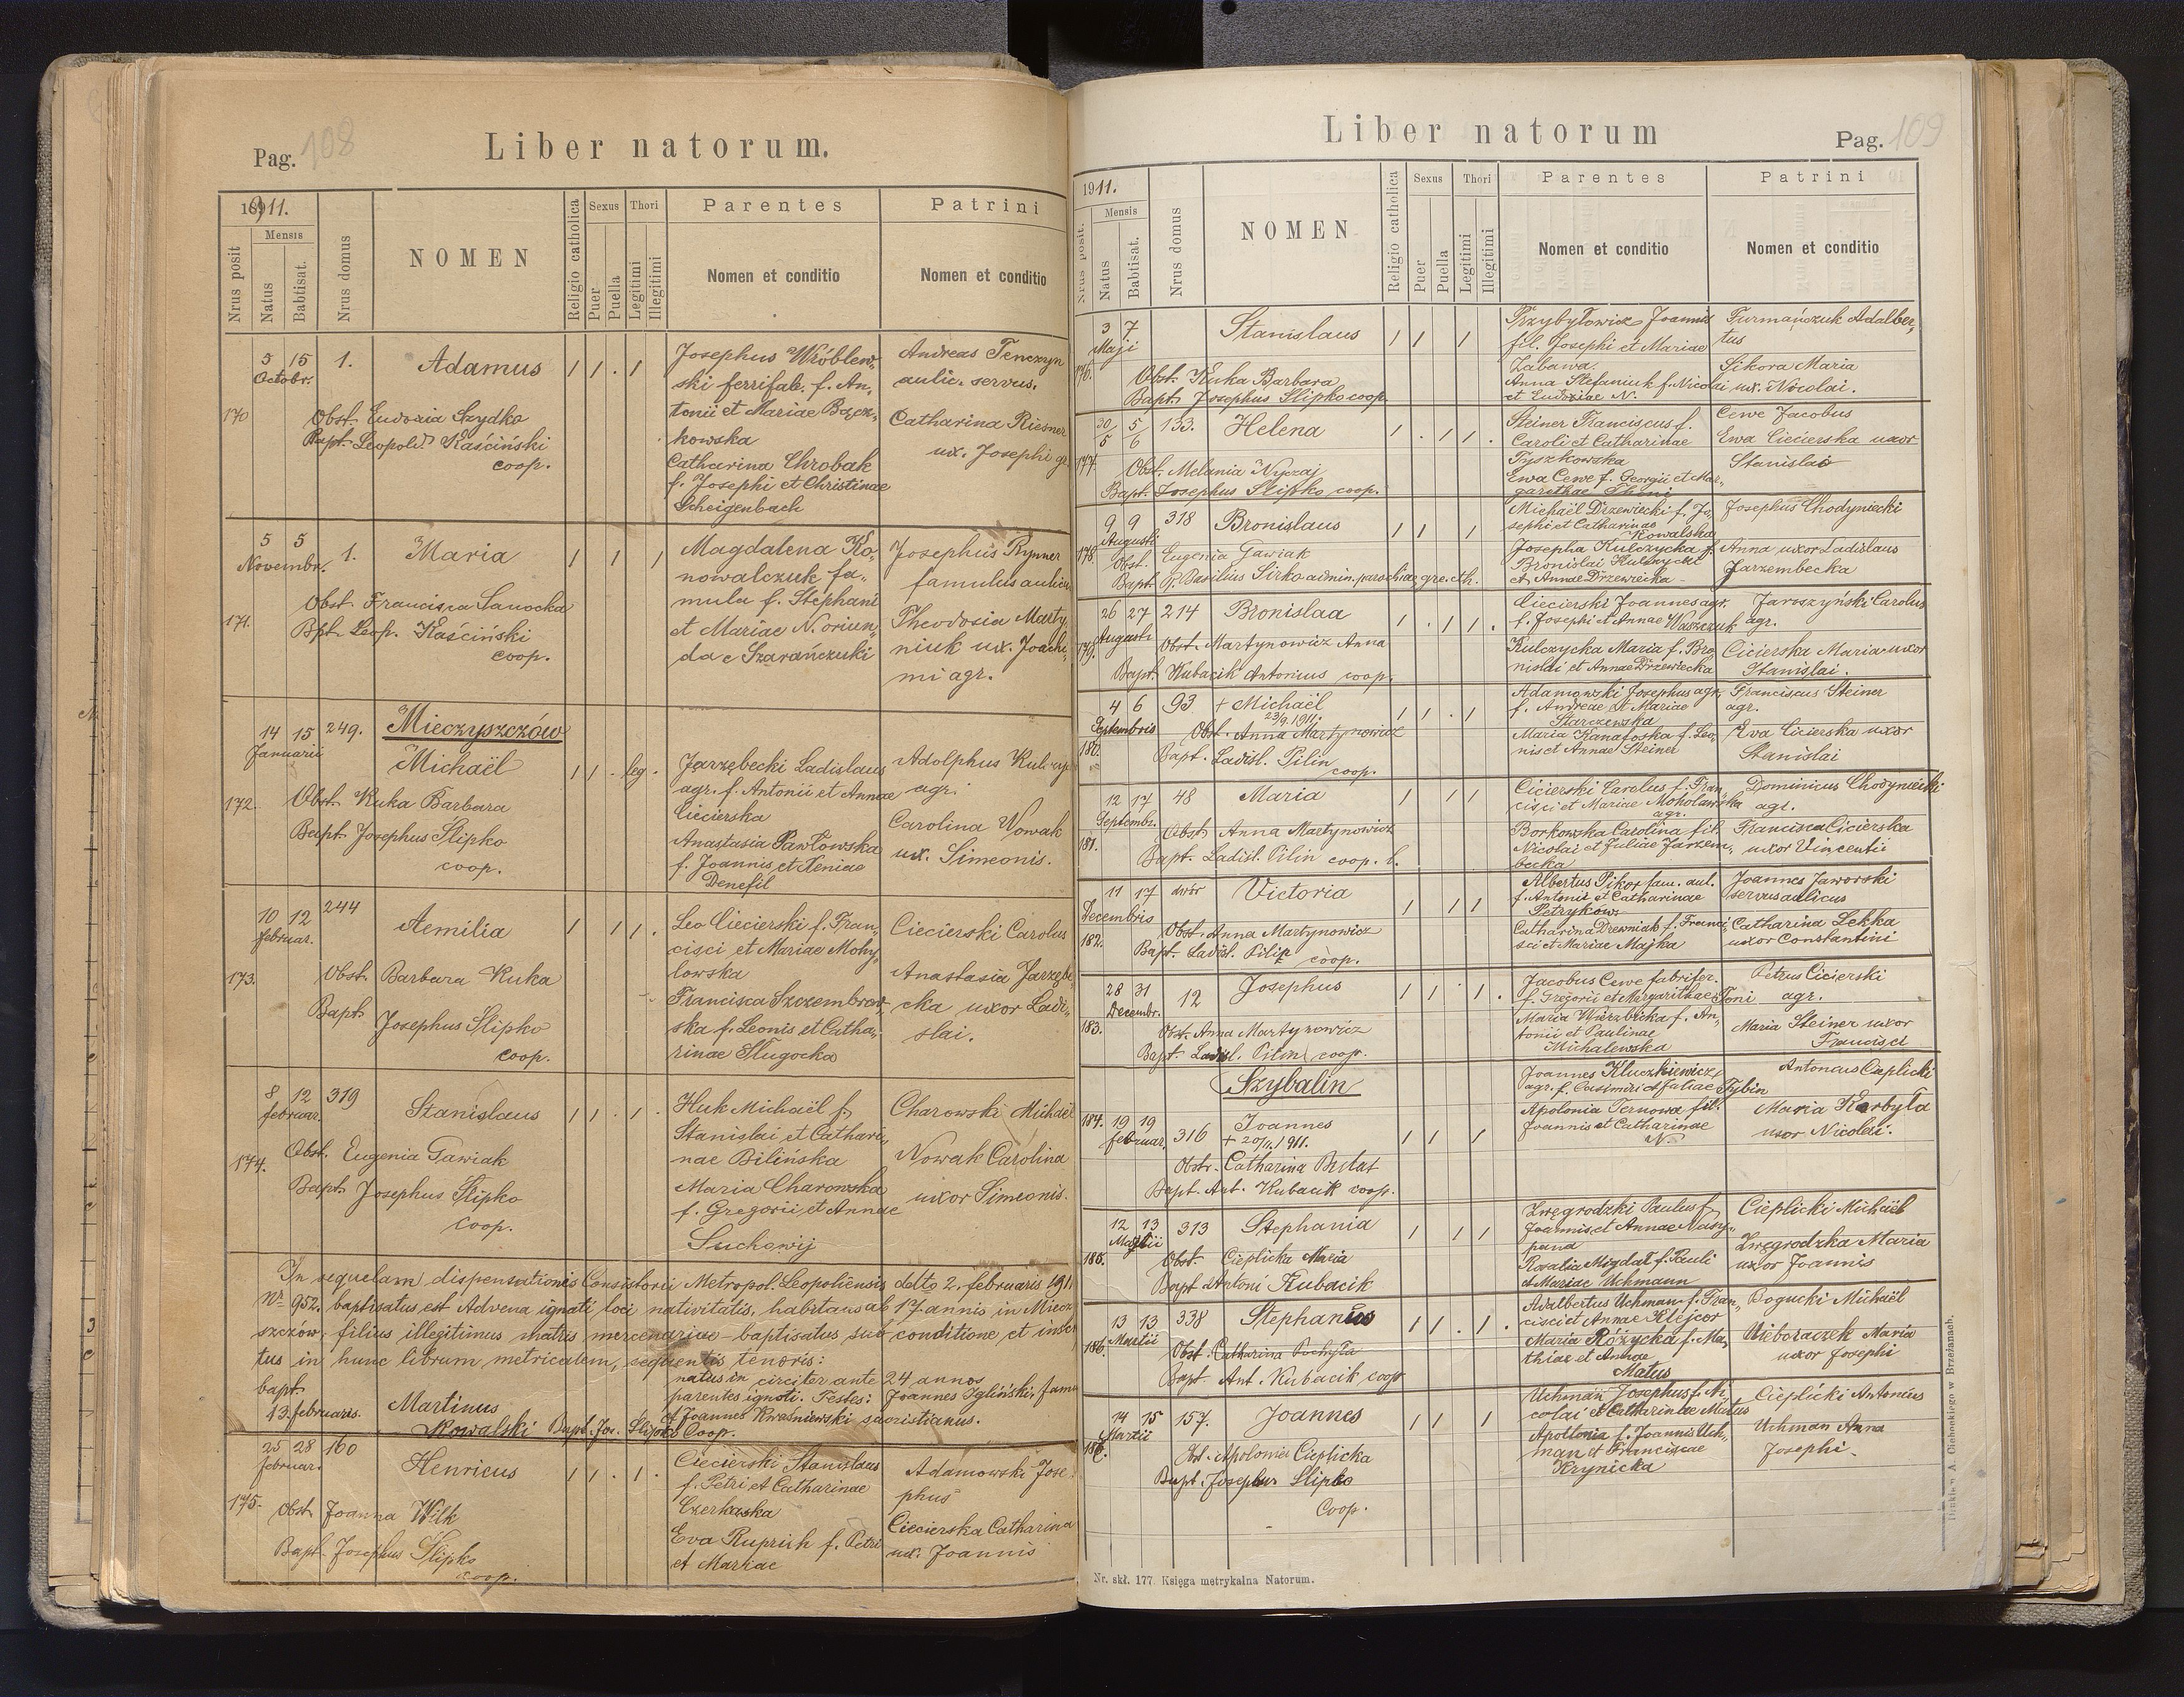 Pag. 108
Liber natorum.
1911.
Mensis
Nrus posit
Natus
Babtisat.
Nrus domus
NOMEN
Religio catholica
Sexus
Puer
Puella
Thori
Legitimi
Illegitimi
Parentes
Nomen et conditio
Patrini
Nomen et conditio
170
5 15
Octobr.
1.
Adamus
Obst. Eudoxia Szydko
Bapt. Leopold Kaściński
coop.
Josephus Wróblew„
ski ferrifab. f. An„
tonii et Mariae Bącz„
kowska
Catharina Chrobak
f. Josephi et Christinae
Scheigenbach
Andreas Tenczyn
aulic. servus.
Catharina Riesner
ux. Josephi
171.
5 5
Novembr.
1.
Maria
Obst. Francisca Sanocka
Bpt. Leop. Kaściński
coop.
Magdalena Ko„
nowalczuk fa„
mula f. Stephani
et Mariae N. oriun„
da e Szarańczuki
Josephus Rymner
famulus aulicus
Theodosia Marty„
niuk ux. Joachi„
mi agr.
Mieczyszczów
172.
14 15
Januarii
249.
Michaël
Obst. Kuka Barbara
Bapt. Josephus Slipko
coop.
leg.
Jarzębecki Ladislaus
agr. f. Antonii et Annae
Ciecierska
Anastasia Pawłowska
f. Joannis et Xeniae
Denefil
Adolphus
agr.
Carolina Nowak
ux. Simeonis.
173.
10 12
februar.
244
Aemilia
Obst. Barbara Kuka
Bapt.
Josephus Slipko
coop.
Leo Ciecierski f. Fran„
cisci et Mariae Mohy„
lowska
Francisca Szczembrow„
ska f. Leonis et Catha„
rinae Sługocka
Ciecierski Carolus
Anastasia Jarzębe„
cka uxor Ladi„
slai.
174.
8 12
februar.
319
Stanislaus
Obst. Eugenia Gawiak
Bapt. Josephus Slipko
coop.
Huk Michaël f.
Stanislai et Cathari„
nae Bilińska
Maria Charowska
f. Gregorii et Annae
Suchowij
Charowski Michaël
Nowak Carolina
uxor Simeonis.
In sequelam dispensationis Consistorii Metropol. Leopoliensis ddto 2. februaris 1911
Nr 952. baptisatus est Advena ignoti loci nativitatis, habitans ab 17 annis in Miecz
szczów, filius illegitimus matris mercenariae – baptisatus sub conditione et inser
tus in hunc librum metricalem, sequentis tenoris:
bapt.
13. februaris.
Martinus
Kowalski Bapt. Jos. Slipko Coop.
natus in circiter ante 24 annos
parentes ignoti. Testes: Joannes Igliński, fam
et Joannes Kwaśniewski sacristianus.
175.
25 28
februar.
160
Henricus
Obst. Joanna Wilk
Bapt. Josephus Slipko
coop.
Ciecierski Stanislaus
f. Petri et Catharinae
Czerkaska
Eva Ruprich f. Petri
et Mariae
Adamowski Jose„
phus
Ciecierska Catharina
ux. Joannis
Liber natorum
Pag. 109
1911.
Mensis
Nrus posit.
Natus
Babtisat.
Nrus domus
NOMEN
Religio catholica
Sexus
Puer
Puella
Thori
Legitimi
Illegitimi
Parentes
Nomen et conditio
Patrini
Nomen et conditio
176.
3 7
Maji
Stanislaus
Obst. Kuka Barbara
Bapt. Josephus Slipko coop.
Przybyłowicz Joannis
fil. Josephi et Mariae
Zabawa.
Anna Stefaniuk f. Nicolai
et Eudoxiae N.
Furmańczuk Adalber„
tus
Sikora Maria
ux. Nicolai.
177.
30/5 5/6
133.
Helena
Obst. Melania Nyczaj
Bapt. Josephus Slipko coop.
Steiner Franciscus f.
Caroli et Catharinae
Tyszkowska
Ewa Cewe f. Georgii et Mar„
garethae Thoni
Cewe Jacobus
Ewa Ciecierska uxor
Stanislai
178.
9 9
Augusti
318
Bronislaus
Obst. Eugenia Gawiak
Bapt. R. Basilius Sirko admin. parochiae gr. cth.
Michaël Drzewiecki f. Jo„
sephi et Catharinae
Kowalska
Josepha Kulczycka f.
Bronislai Kulczycki
et Annae Drzewiecka
Josephus Chodyniecki
Anna uxor Ladislaus
Jarzembecka
179.
26 27
Augusti
214
Bronislaa
Obst. Martynowicz Anna
Bapt. Kubacik Antonius coop.
Ciecierski Joannes agr.
f. Josephi et Annae Waszczuk
Kulczycka Maria f. Bro„
nislai et Annae Drzewiecka
Jaroszyński Carolus
agr.
Cicierska Maria uxor
Stanislai.
180.
4 6
Septembris
93
+ Michaël
23/9 1911.
Obst. Anna Martynowicz
Bapt. Ladisl. Pilin
coop.
Adamowski Josephus agr.
f. Andreae et Mariae
Starczewska
Maria Kanafoska f. Leo„
nis et Annae Steiner
Franciscus Steiner
agr.
Eva Cicierska uxor
Stanislai
181.
12 17
Septembr.
48
Maria
Obst. Anna Martynowicz
Bapt. Ladisl. Pilin coop. l.
Cicierski Carolus f. Fran„
cisci et Mariae Moholawska
agr.
Borkowska Carolina fil.
Nicolai et Juliae Jarzem„
becka
Dominicus Chodyniecki
agr.
Francisca Cicierska
uxor Vincentii
182.
11 17
Decembris
dwór
Victoria
Obst. Anna Martynowicz
Bapt. Ladisl. Pilip
coop.
Albertus Pikor fam. aul.
f. Antonii et Catharinae
Petryków.
Catharina Drewniak f. Franci„
sci et Mariae Majka
Joannes Jaworski
servus aulicus
Catharina Lekka
uxor Constantini
183.
28 31
Decembr.
12
Josephus
Obst. Anna Martynowicz
Bapt. Ladisl. Pilin coop.
Jacobus Cewe fabrifer.
f. Gregorii et Margarithae Toni
Maria Wierzbicka f. An„
tonii et Paulinae
Michalewska
Petrus Cicierski
agr.
Maria Steiner uxor
Francisci
Szybalin
184.
19 19
februar.
316
Joannes
+ 20/2. 1911.
Obst. Catharina
Bapt. Ant. Kubacik coop.
Joannes Kluczkiewicz
agr. f. Casimiri et Juliae Tybin
Apolonia Ternowa fil.
Joannis et Catharinae
N.
Antonius Cieplicki
Maria Karbyla
uxor Nicolai.
185.
12 13
Martii
313
Stephania
Obst. Cieplicka Maria
Bapt. Antoni Kubacik
Zwęgrodzki Paulus f.
Joannis et Annae Nasy„
pana
Rosalia Migdał f. Pauli
et Mariae Uchmann
Cieplicki Michaël
Zwęgrodzka Maria
uxor Joannis
186.
13 13
Martii
338
Stephanus
Obst. Catharina
Bapt. Ant. Kubacik coop
Adalbertus Uchman f. Fran„
cisci et Annae Klejcor
Maria Różycka f. Ma„
thiae et Annae
Matus
Bogucki Michaël
Nieboraczek Maria
uxor Josephi
186.
14 15
Martii
157.
Joannes
Obst. Apolonia Cieplicka
Bapt. Josephus Slipko
Coop.
Uchman Josephus f. Ni„
colai et Catharinae Matus
Apollonia f. Joannis Uch„
man et Franciscae
Krynicka
Cieplicki Antonius
Uchman Anna
Josephi
Nr. skł. 177. Księga metrykalna Natorum.